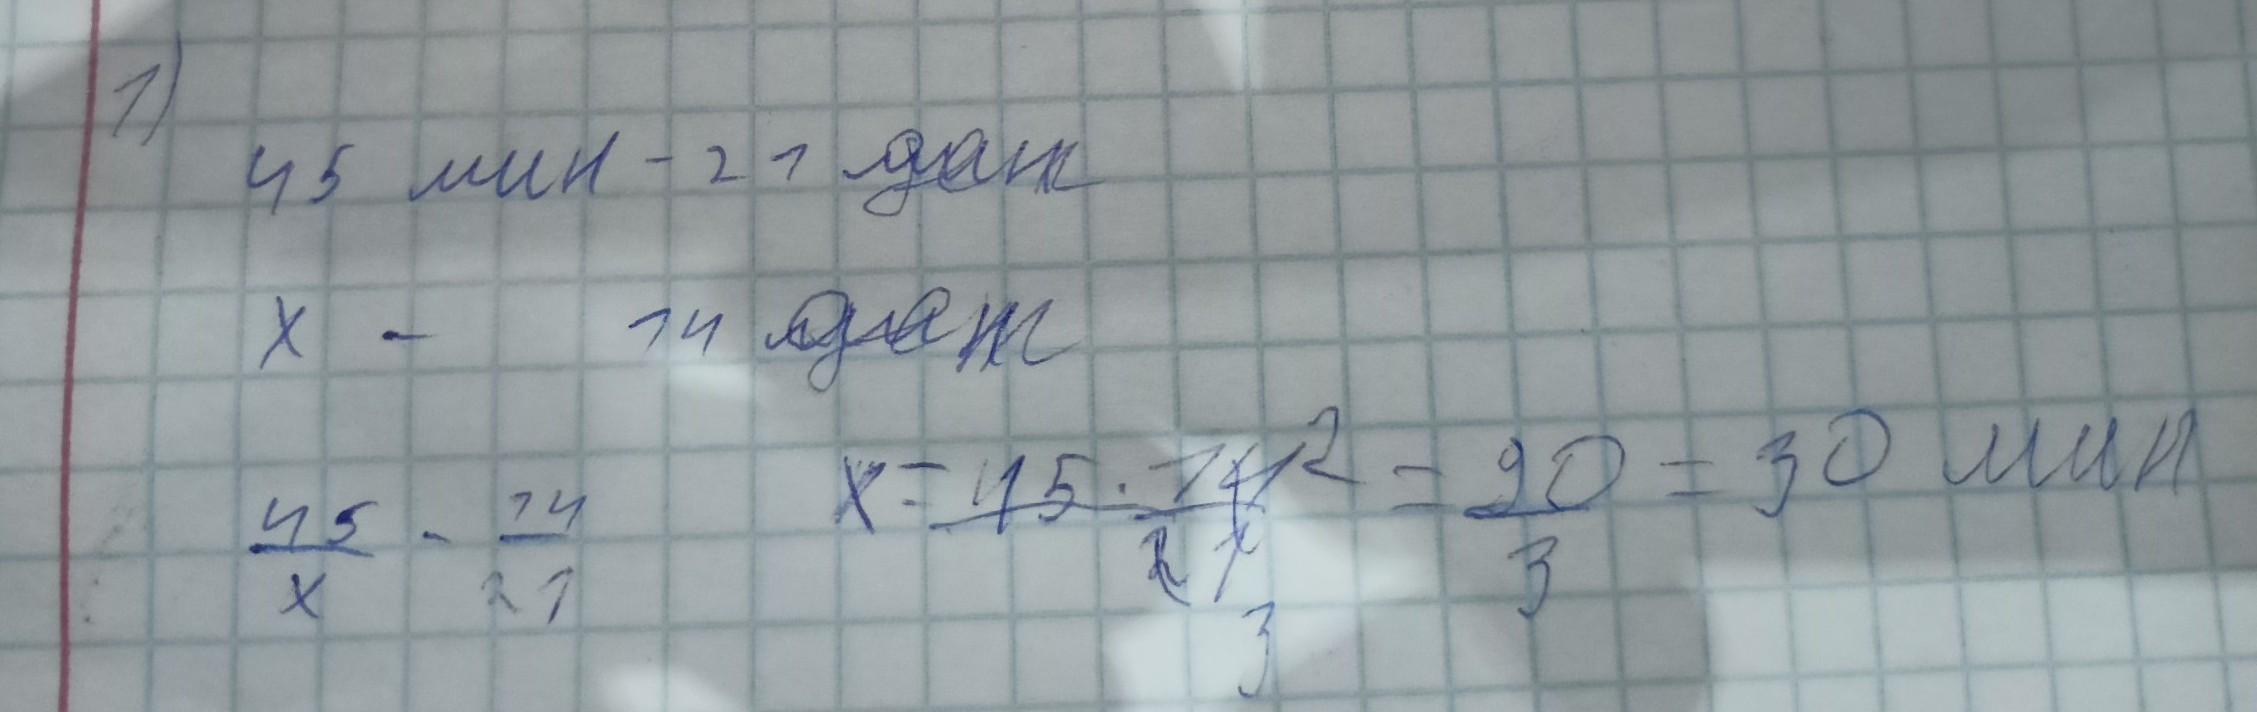 1)
45 мин - 21 даж
x - 14 даж
45/x - 14/21 x = 45 · 14 2 / 21 3 = 90/3 = 30 мин